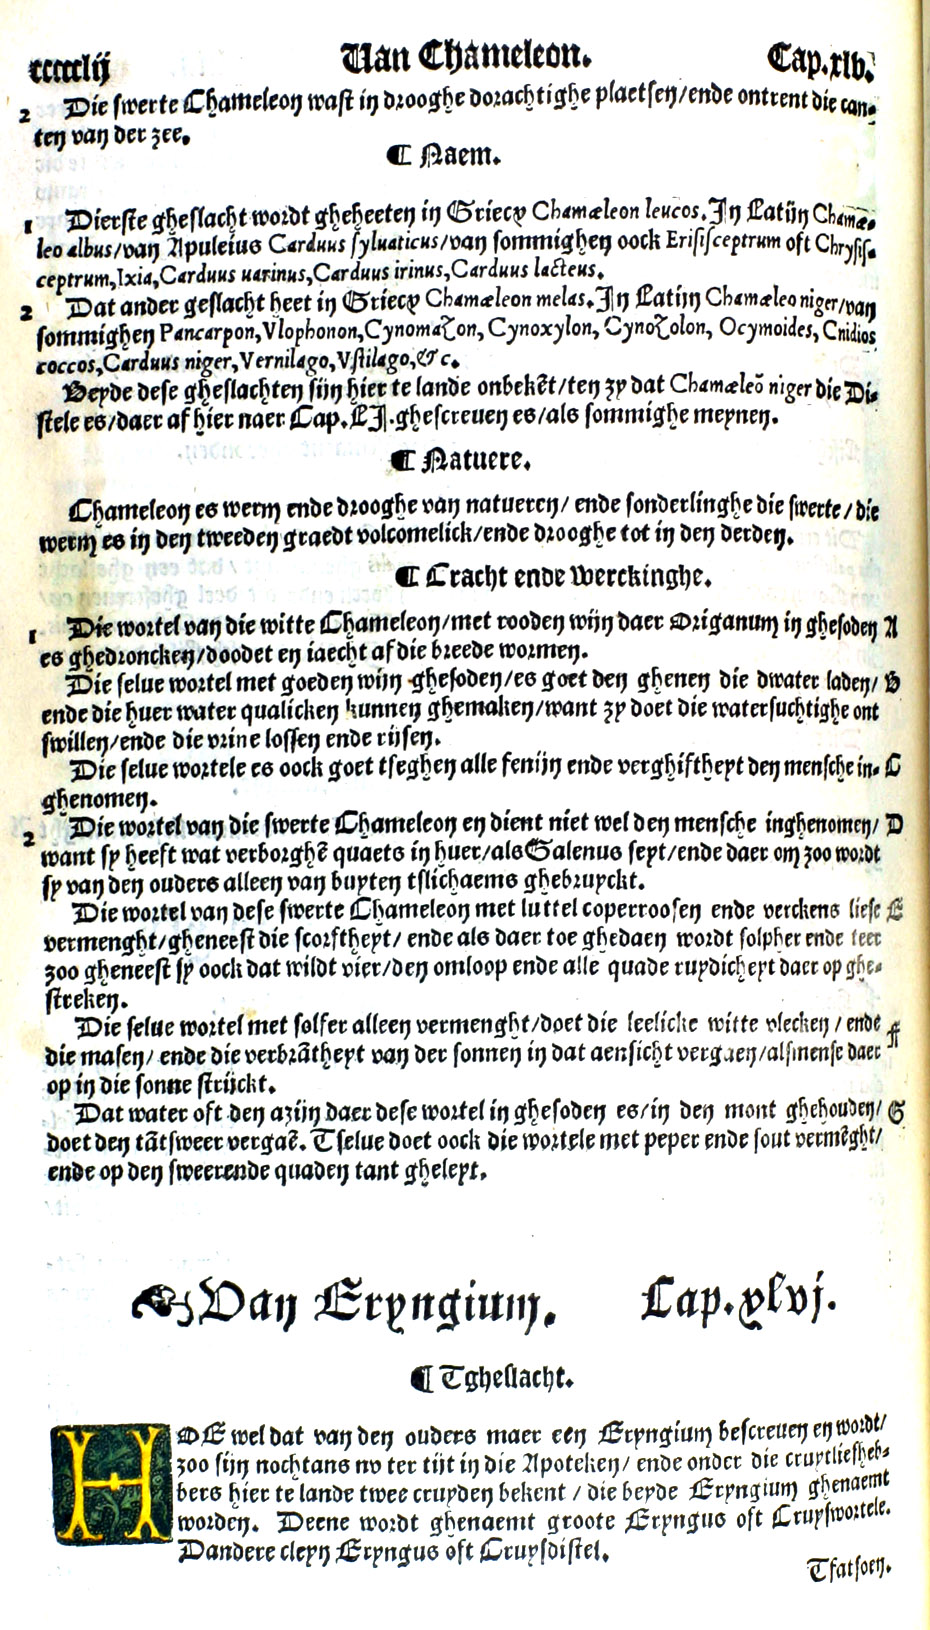 ccccclij Van Chameleon. Cap.xlv.
2 Die swerte Chameleon wast in drooghe dorachtighe plaetsen/ende ontrent die can-
ten van der zee.
¶ Naem.
1 Dierste gheslacht wordt gheheeten in Griecx Chamæleon leucos. In Latijn Chamæ-
leo albus/van Apuleius Carduus syluaticus/van sommighen oock Erisisceptrum oft Chrysis-
ceptrum, Ixia, Carduus uarinus, Carduus irinus, Carduus lacteus.
2 Dat ander geslacht heet in Griecx Chamæleon melas. In Latijn Chamæleo niger/van
sommighen Pancarpon, Vlophonon, Cynomazon, Cynoxylon, Cynozolon, Ocymoides, Cnidios
coccos, Carduus niger, Vernilago, Vstilago, &c.
Beyde dese gheslachten sijn hier te lande onbekēt/ten zy dat Chamæleō niger die Di-
stele es/daer af hier naer Cap. LI. ghescreuen es/als sommighe meynen.
¶ Natuere.
Chameleon es werm ende drooghe van natueren/ ende sonderlinghe die swerte/ die
werm es in den tweeden graedt volcomelick/ende drooghe tot in den derden.
¶ Cracht ende Werckinghe.
1 Die wortel van die witte Chameleon/met rooden wijn daer Origanum in ghesoden A
es ghedroncken/doodet en iaecht af die breede wormen.
Die selue wortel met goeden wijn ghesoden/es goet den ghenen die dwater laden/ B
ende die huer water qualicken kunnen ghemaken/want zy doet die watersuchtighe ont
swillen/ende die vrine lossen ende rijsen.
Die selue wortele es oock goet tseghen alle fenijn ende verghiftheyt den mensche in- C
ghenomen.
2 Die wortel van die swerte Chameleon en dient niet wel den mensche inghenomen/ D
want sy heeft wat verborghē quaets in huer/als Galenus seyt/ende daer om zoo wordt
sy van den ouders alleen van buyten tslichaems ghebruyckt.
Die wortel van dese swerte Chameleon met luttel coperroosen ende verckens liese E
vermenght/gheneest die scorftheyt/ ende als daer toe ghedaen wordt solpher ende teer
zoo gheneest sy oock dat wildt vier/den omloop ende alle quade ruydicheyt daer op ghe-
streken.
Die selue wortel met solfer alleen vermenght/doet die leelicke witte vlecken / ende F
die masen/ ende die verbrātheyt van der sonnen in dat aensicht vergaen/alsmense daer
op in die sonne strijckt.
Dat water oft den azijn daer dese wortel in ghesoden es/in den mont ghehouden/ G
doet den tātsweer vergaē. Tselue doet oock die wortele met peper ende sout vermēght/
ende op den sweerende quaden tant gheleyt.
Van Eryngium. Cap.xlvj.
¶ Tgheslacht.
HOE wel dat van den ouders maer een Eryngium bescreuen en wordt/
zoo sijn nochtans nv ter tijt in die Apoteken/ ende onder die cruytliefheb-
bers hier te lande twee cruyden bekent / die beyde Eryngium ghenaemt
worden. Deene wordt ghenaemt groote Eryngus oft Cruyswortele.
Dandere cleyn Eryngus oft Cruysdistel.
Tfatsoen.